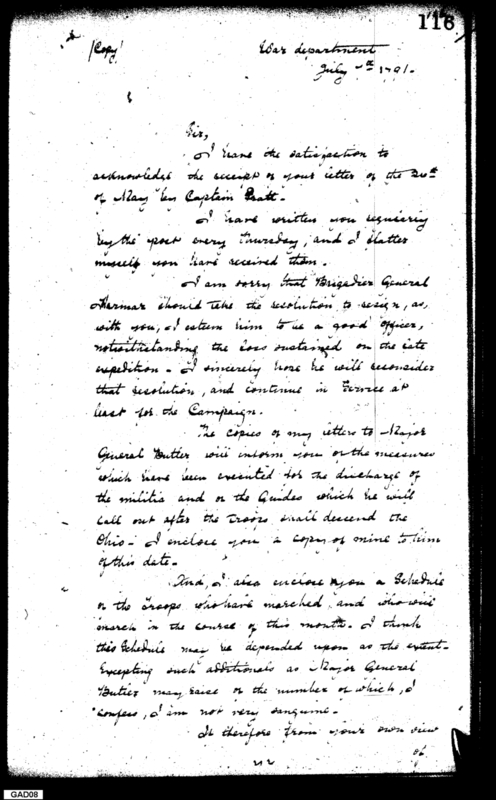 116
(Copy)
War department
July 1791.
Sir,
I have the satisfaction to
acknowledge the receipt of your letter of the
of May by Captain Pratt.
I have written you regularly
by the post every Thursday, and I flatter
myself you have received them.
I am sorry that Brigadier General
Harmar should take the resolution to resign, as,
with you, I esteem him to be a good officer,
notwithstanding the loss sustained on the late
expedition - I sincerely hope he will reconsider
that resolution, and continue in Service at
least for the Campaign.
The copies of my letters to Major
General Butler will inform you of the measures
which have been executed for the discharge of
the militia and of the Guides which he will
call out after the troops shall descend the
Ohio - I enclose you a copy of mine to him
of this date.
And, I also enclose you a Schedule
of the Troops who have marched, and who will
march in the course of this month. I think
this Schedule may be depended upon as the extent.
Excepting such additionals as Major General
Butler may raise of the number of which, I
confess, I am not very sanguine.
If therefore from your own view
of
GAD08